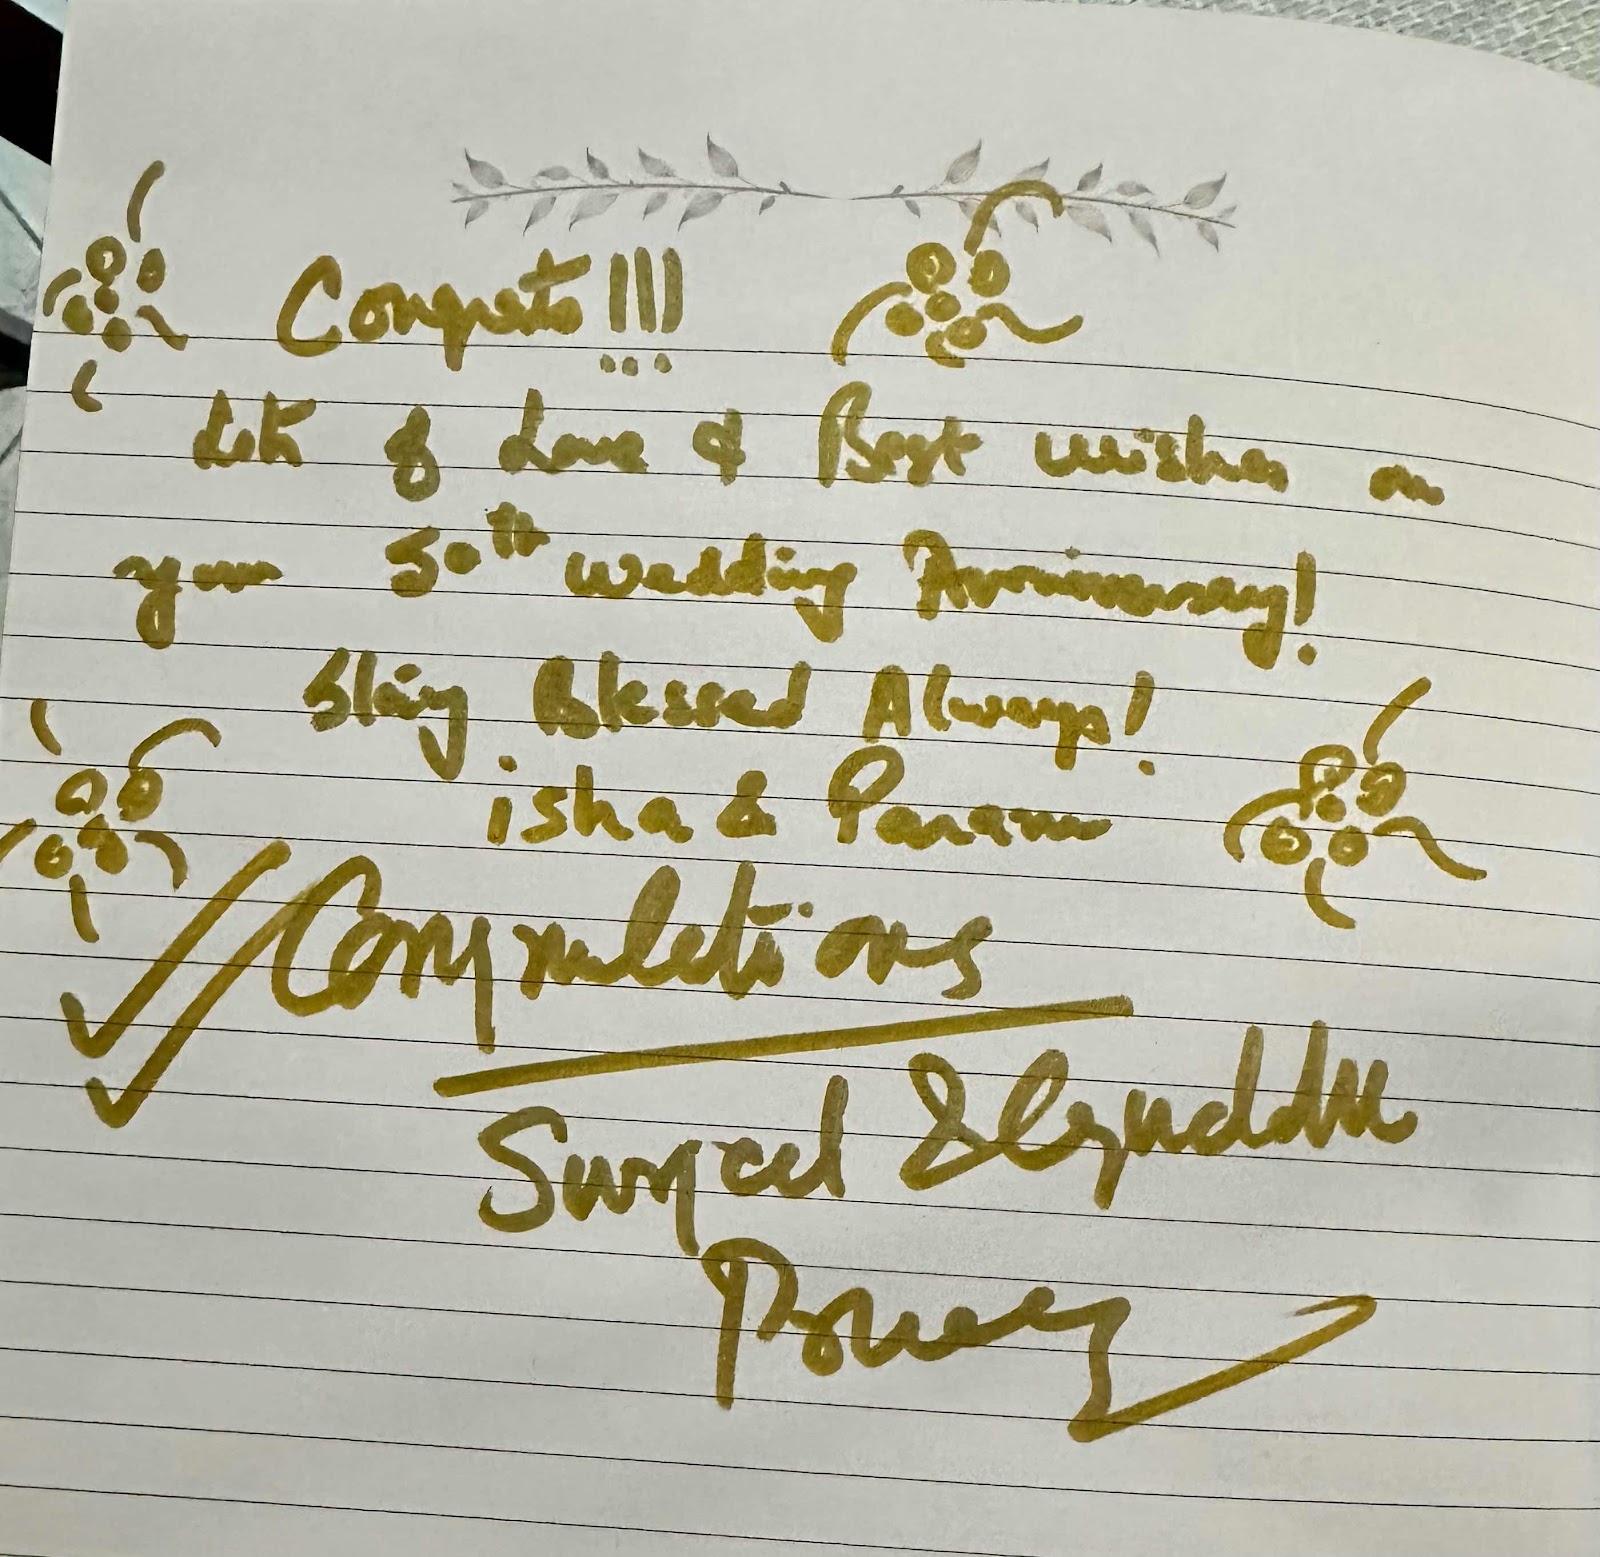 Congrats!!!
Lots of Love & Best wishes on
your 50th wedding Anniversary!
Stay Blessed Always!
isha & Param
Congruletions
Surjeet &